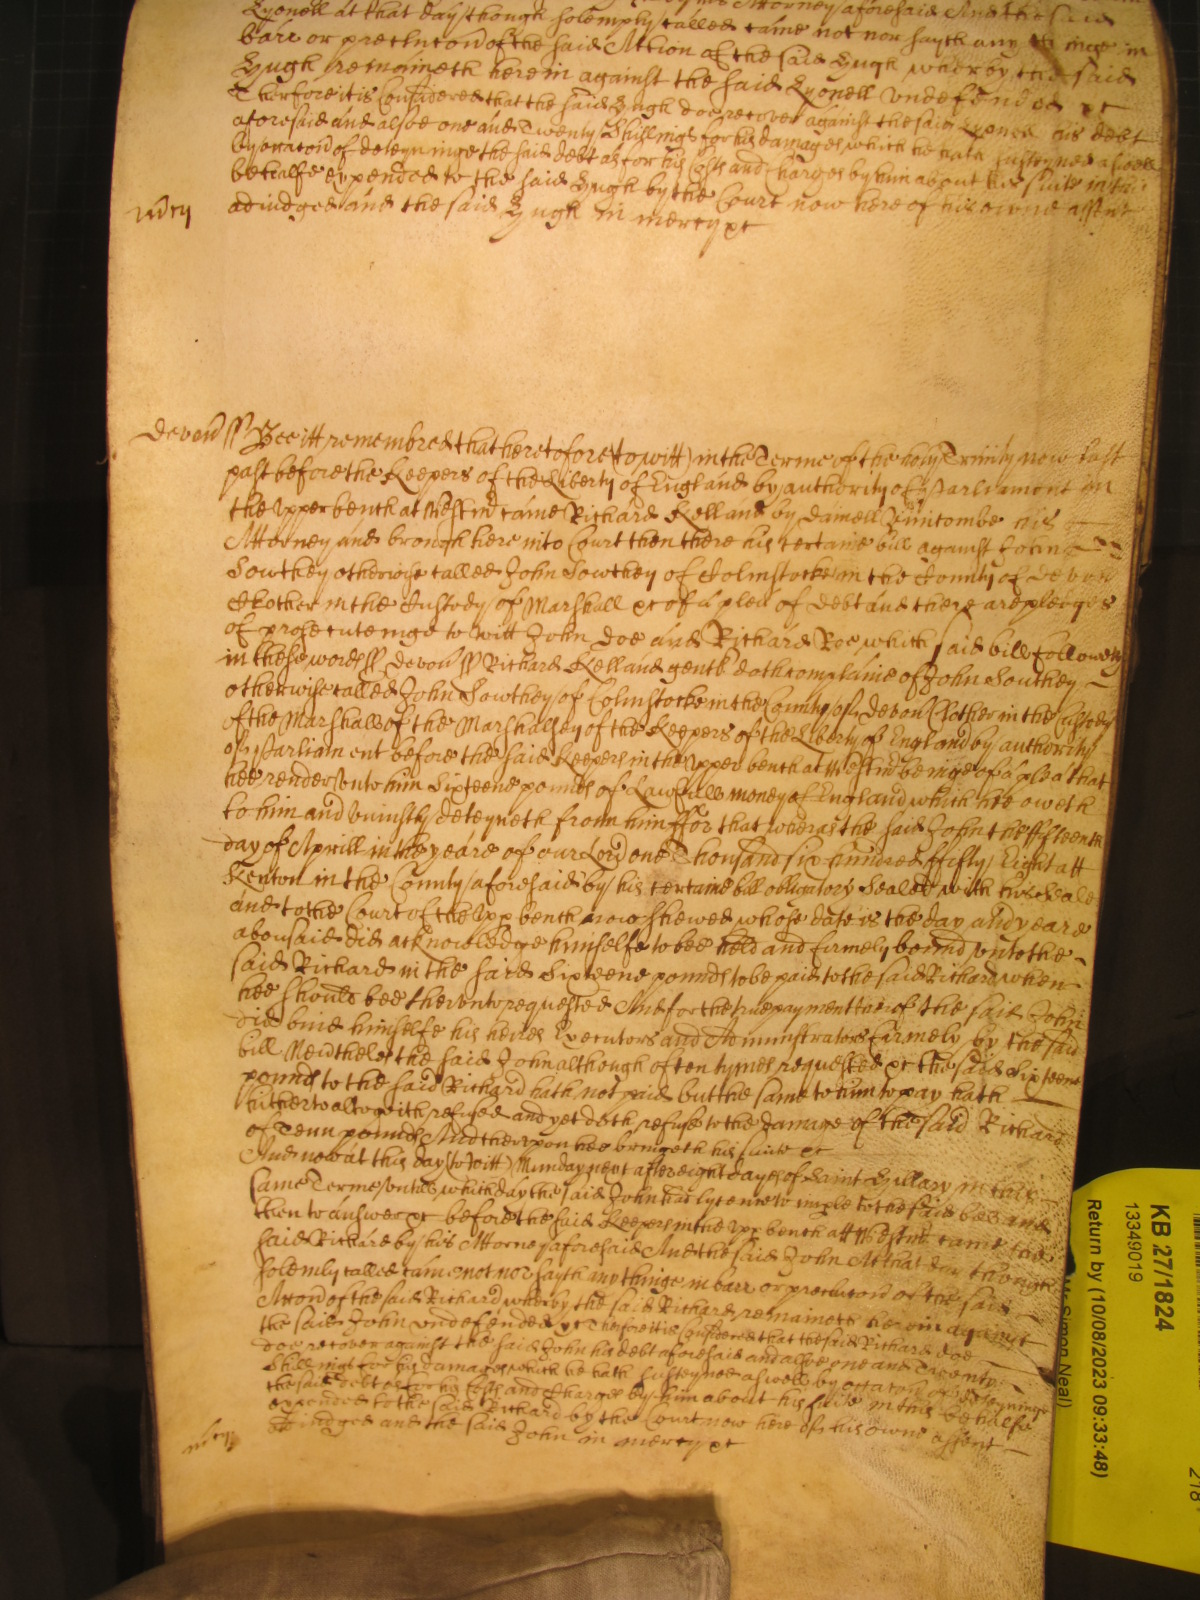 Lyonell at that day though solemply called came not nor sayth any thinge in
barr or preclucon of the said Action of the said Hugh wherby the said
Hugh remaineth herein against the said Lyonell undefended &c
Therfore it is Considered that the said Hugh doe recover against the said Lyonell his debt
aforesaid and alsoe one and Twenty Shillings for his damages which he hath susteyned aswell
by occacon of deteyninge the said debt as for his Costs and Charges by him about his suite in this
behalfe expended to the said Hugh by the Court now here of his owne assent
adiudged and the said Hugh in mercy &c
mcy
Devon ss Bee itt remembred that heretofore (to witt) in the Terme of the holy Trinity now last
past before the Keepers of the Liberty of England by authority of Parliament in
the Upper bench at Westmr came Richard Kelland by Daniell his
Attorney and brough here into Court then there his certaine bill against John
Sowthey otherwise called John Sowthey of Colmstocke in the County of Devon
Clothier in the Custody of Marshall &c of a plea of debt and there are pledges
of prosecuteinge to witt John Doe and Richard Roe which said bill followeth
in these words ss Devon ss Richard Kelland gent doth complaine of John Southey
otherwise called John Sowthey of Colmstocke in the County of Devon Clothier in the Custody
of the Marshall of the Marshalsey of the Keepers of the Liberty of England by authority
of Parliament before the said Keepers in the Upper bench at Westmr beinge of a plea that
hee render unto him Sixteene pounds of Lawfull money of England which hee oweth
to him and uniustly deteyneth from him ffor that wheras the said John the ffifteenth
day of Aprill in the yeare of our Lord one Thousand six hundred ffifty Eight att
Kenton in the County aforesaid by his certaine bill obligatory Sealed with his Seale
and to the Court of the Upp bench now shewed whose date is the day and yeare
abousaid did acknowledge himselfe to bee held and firmely bound unto the
said Richard in the said Sixteene pounds to be paid to the said Richard when
hee should bee therunto requested And for the true payment therof the said John
did bind himselfe his heires Executors and Administrators firmely by the said
bill Neverthelesse the said John although often tymes requested &c the said Sixteene
pounds to the said Richard hath not paid but the same to him to pay hath
hitherto altogeith refused and yet doth refuse to the damage of the said Richard
of Tenn pounds And therupon hee bringeth his suite &c
And now at this day (to Witt) Munday next after eight dayes of Saint Hillary in this
same Terme untill which day the said John had lycence to imple to the said bill and
then to answer &c before the said Keepers in the Upp bench att Westmr came the
said Richard by his Attorney aforesaid And the said John At that day though
solemly called came not nor sayth any thinge in barr or preclucon of the said
Accon of the said Richard wherby the said Richard remaineth herein against
the said John undefended &c Therfore itt is Considered that the said Richard doe
doe recover against the said John his debt aforesaid and alsoe one and Twenty
Shillings for his damages which he hath susteyned aswell by occacon of deteyninge
the said debt as for his Costs and Charges by him about his suite in this behalfe
expended to the said Richard by the Court now here of his owne assent
Adiudged and the said John in mercy &c
mcy
KB 27/1824
13349019
Return by (10/08/2023 09:33:48)
Simon Neal)
218